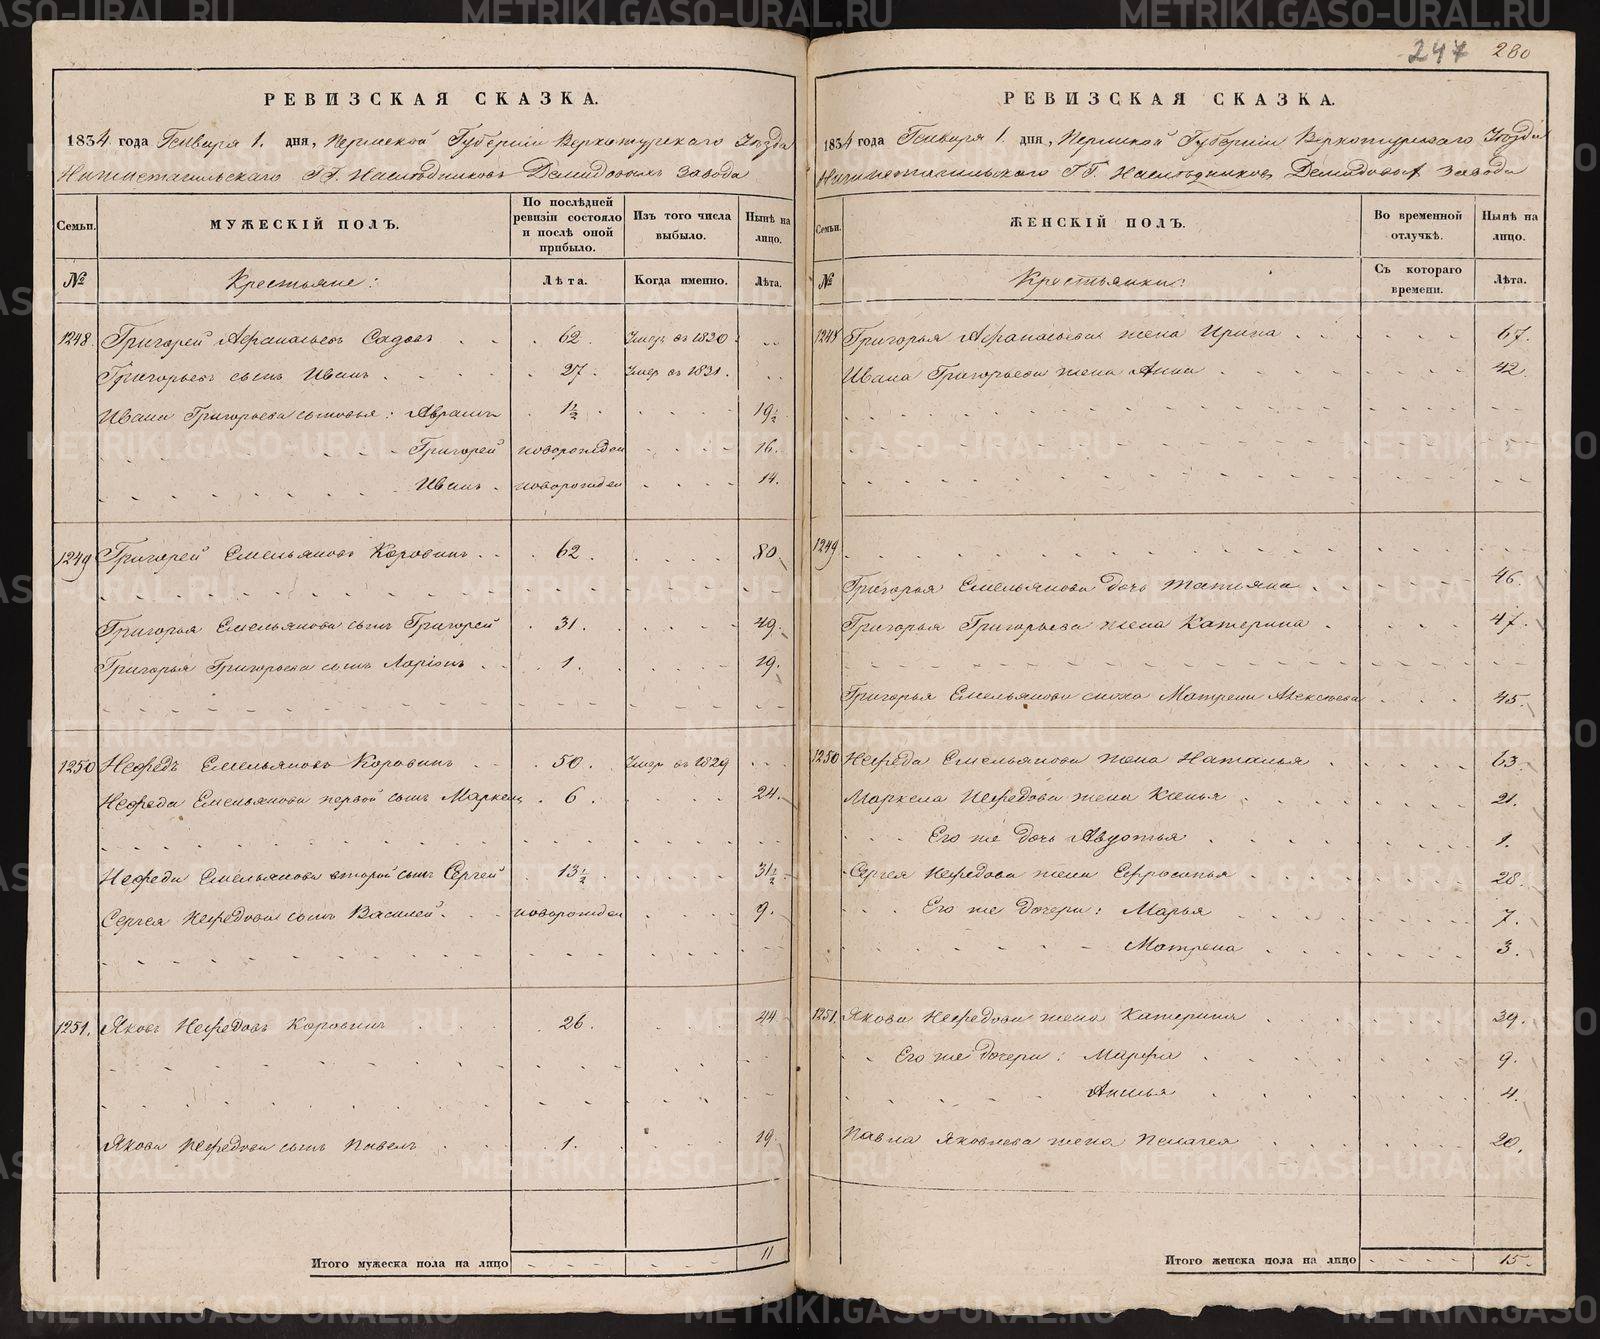 РЕВИЗСКАЯ СКАЗКА.
1834 года Генваря 1. дня, Пермской Губернии Верхотурского Уезда
Нижнетагильского ГГ. Наследников Демидовых завода
Семьи.
МУЖЕСКІЙ ПОЛЪ.
По послѣдней ревизіи состояло и послѣ оной прибыло.
Изъ того числа выбыло.
Нынѣ на лицо.
№
Крестьяне:
Лѣта.
Когда именно.
Лѣта.
1248. Григорей Афанасьевъ Садовъ 62. Умеръ въ 1830.
Григорьевъ сынъ Иванъ 27. Умер въ 1831.
Ивана Григорьева сыновья: Абрамъ 1½ 19½
Григорей новорожден 16.
Иванъ новорожден 14.
1249 Григорей Емельяновъ Коровинъ 62. 80.
Григорья Емельянова сынъ Григорей 31. 49.
Григорья Григорьева сынъ Ларіонъ 1. 19.
1250 Нефедъ Емельяновъ Коровинъ 50. Умер въ 1829
Нефеда Емельянова первой сынъ Маркелъ 6. 24.
Нефеда Емельянова второй сынъ Сергей 13½ 31½
Сергея Нефедова сынъ Василей новорожден 9.
1251. Яковъ Нефедовъ Коровинъ 26. 44
Якова Нефедова сынъ Павелъ 1. 19.
Итого мужеска пола на лицо 11
247 280
РЕВИЗСКАЯ СКАЗКА.
1834 года Генваря 1. дня, Пермской Губернии Верхотурского Уезда
Нижнетагильского ГГ. Наследников Демидовых завода
Семьи.
ЖЕНСКІЙ ПОЛЪ.
Во временной отлучкѣ.
Нынѣ на лицо.
№
Крестьянки:
Съ котораго времени.
Лѣта.
1248 Григорья Афанасьева жена Ирина 67.
Ивана Григорьева жена Анна 42.
1249
Григорья Емельянова дочь Татьяна 46.
Григорья Григорьева жена Катерина 47.
Григорья Емельянова сноха Матрена Алексеева 45.
1250 Нефеда Емельянова жена Наталья 63.
Маркела Нефедова жена Ксенья 21.
Его же дочь Авдотья 1.
Сергея Нефедова жена Ефросинья 28.
Его же дочери: Марья 7.
Матрена 3.
1251. Якова Нефедова жена Катерина 39.
Его же дочери: Марфа 9.
Анисья 4.
Павла Яковлева жена Пелагея 20.
Итого женска пола на лицо 15.
METRIKI.GASO-URAL.RU